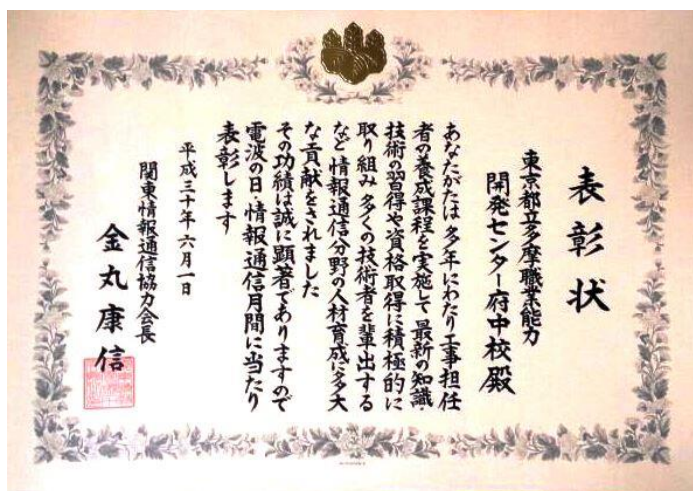 表彰状
東京都立多摩職業能力
開発センター府中校殿
あなたがたは 多年にわたり工事担任
者の養成課程を実施して 最新の知識・
技術の習得や資格取得に積極的に
取り組み 多くの技術者を輩出する
など 情報通信分野の人材育成に多大
な貢献をされました
その功績は誠に顕著でありますので
電波の日 情報通信月間に当たり
表彰します
平成三十年六月一日
関東情報通信協力会長
金丸康信